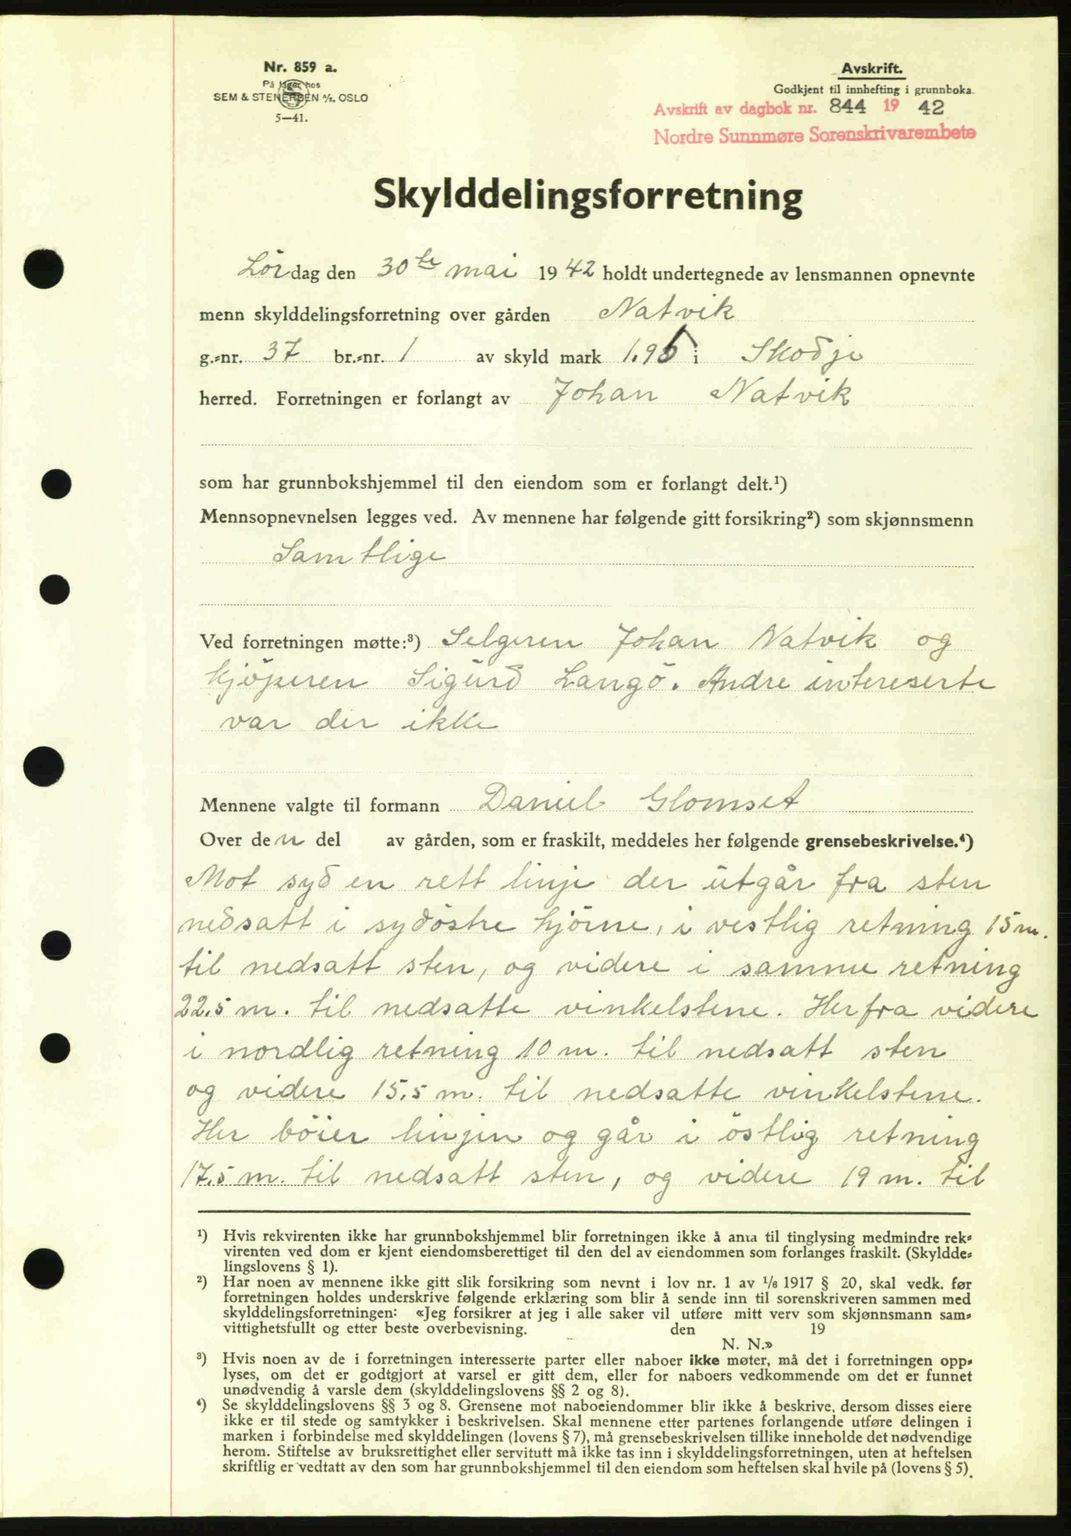 Nr. 859 a.
På lager hos
SEM & STENERSEN A/S. OSLO
5—41.
Avskrift.
Godkjent til innhefting i grunnboka.
Avskrift av dagbok nr. 844 19 42
Nordre Sunnmøre Sorenskrivarembete
Skylddelingsforretning
Lördag den 30te mai 1942 holdt undertegnede av lensmannen opnevnte
menn skylddelingsforretning over gården Natvik
g.-nr. 37 br.-nr. 1 av skyld mark 1.95 i Skodje
herred. Forretningen er forlangt av Johan Natvik
som har grunnbokshjemmel til den eiendom som er forlangt delt.¹)
Mennsopnevnelsen legges ved. Av mennene har følgende gitt forsikring²) som skjønnsmenn
Samtlige
Ved forretningen møtte:³) Selgeren Johan Natvik og
kjöperen Sigurd Langö. Andre intereserte
var der ikke
Mennene valgte til formann Daniel Glomset
Over den del av gården, som er fraskilt, meddeles her følgende grensebeskrivelse.⁴)
Mot syd en rett linje der utgår fra sten
nedsatt i sydöstre hjörne, i vestlig retning 15 m.
til nedsatt sten, og videre i samme retning
22.5 m. til nedsatte vinkelstene. Herfra videre
i nordlig retning 10 m. til nedsatt sten
og videre 15.5 m. til nedsatte vinkelstene.
Her böier linjen og går i östlig retning
17.5 m. til nedsatt sten, og videre 19 m. til
¹) Hvis rekvirenten ikke har grunnbokshjemmel blir forretningen ikke å anta til tinglysing medmindre rek-
virenten ved dom er kjent eiendomsberettiget til den del av eiendommen som forlanges fraskilt. (Skyldde-
lingslovens § 1).
²) Har noen av mennene ikke gitt slik forsikring som nevnt i lov nr. 1 av 1/6 1917 § 20, skal vedk. før
forretningen holdes underskrive følgende erklæring som blir å sende inn til sorenskriveren sammen med
skylddelingsforretningen: «Jeg forsikrer at jeg i alle saker vil utføre mitt verv som skjønnsmann sam-
vittighetsfullt og etter beste overbevisning. den 19
N. N.»
³) Hvis noen av de i forretningen interesserte parter eller naboer ikke møter, må det i forretningen opp-
lyses, om det er godtgjort at varsel er gitt dem, eller for naboers vedkommende om det er funnet
unødvendig å varsle dem (skylddelingslovens §§ 2 og 8).
⁴) Se skylddelingslovens §§ 3 og 8. Grensene mot naboeiendommer blir ikke å beskrive, dersom disses eiere
ikke er til stede og samtykker i beskrivelsen. Skal mennene etter partenes forlangende utføre delingen i
marken i forbindelse med skylddelingen (lovens § 7), må grensebeskrivelsen tillike inneholde det nødvendige
herom. Stiftelse av bruksrettighet eller servitutt må ikke tas inn i skylddelingsforretningen, uten at heftelsen
skriftlig er vedtatt av den som har grunnbokshjemmel til den eiendom som heftelsen skal hvile på (lovens § 5).